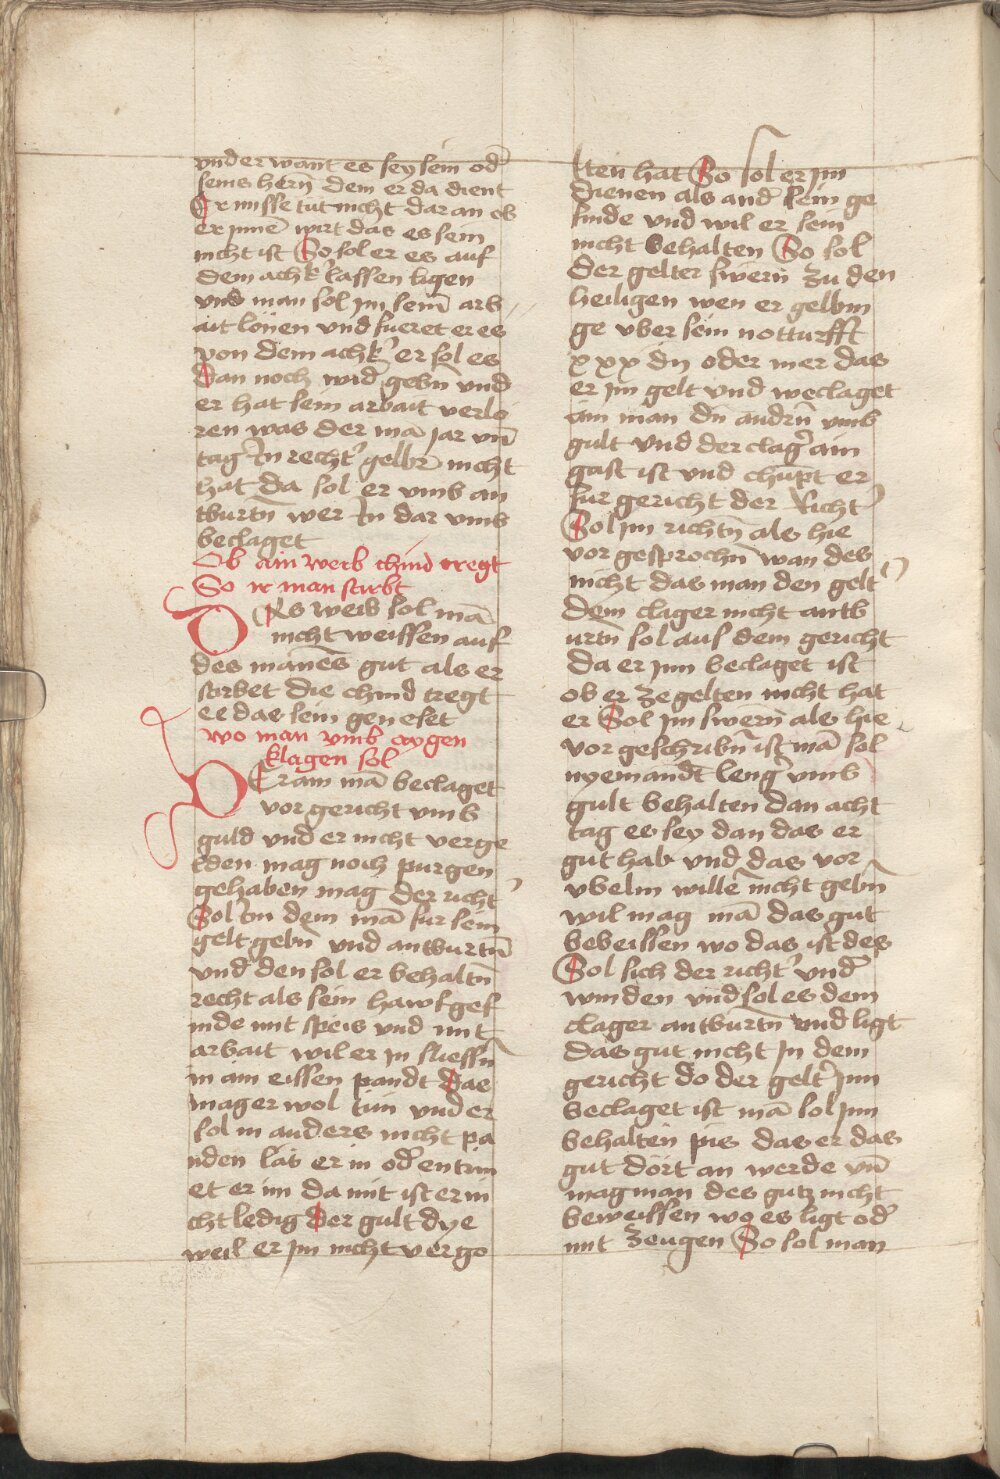 vnder want es sey sein od̄
seins hern̄ dem er da dient
Er misse tut nicht dar an ob
er ynnē wirt das es sein
nicht ist So sol er es auf
dem ack' lassen ligen
vnd man sol im seinē arb
ait lönen vnd fueret er es
von dem achk' er sol es
Dan noch wid' gebn̄ vnd
er hat sein arbait verlo
ren was der mā jar vn̄
tag In recht' gelbr̄ nicht
hat da sol er vmb an
tburtn̄ wer In dar vmb
beclaget
Ob ain weib chind tregt
So ir man stirbt
Das weib sol mā
nicht weissen auf
des mānes gut als er
stirbet die chind tregt
ee das sein geneset
wo man vmb aygen
klagen sol
Der ain mā beclaget
vor gericht vmb
guld vnd er nicht verge
lden mag noch purgen
gehaben mag der richt'
Sol Im dem mā fur sein
gelt gebn̄ vnd antburtn̄
vnd den sol er behaltn̄
recht als sein hawsges
inde mit speis vnd mit
arbait wil er in sliessn̄
in ain eissen pandt Das
mag er wol tun vnd er
sol in anders nicht pa
nden las er in od' entrin
et er im da mit ist er ni
cht ledig Der gult dye
weil er im nicht vergo
lten hat So sol er im
dienen als and' sein ge
sinde vnd wil er sein
nicht behalten So sol
der gelter swern zu den
heiligen wen er gelbin
ge vber sein notturfft
xxx dn̄ oder mer das
er im gelt vnd weclaget
ain man dn̄ andrn̄ vmb
gult vnd der clag' ain
gast ist vnd chūpt er
fur gericht der Richt'
Sol im richtn̄ als hie
vor gesprochn̄ wan des
nicht das man den gelt'
dem clager nicht antb
urtn̄ sol auf dem gericht
da er inn beclaget ist
ob er ze gelten nicht hat
er Sol im swern̄ als hie
vor geschribn̄ ist mā sol
nyemandt leng' vmb
gult behalten dan acht
tag es sey dan das er
gut hab vnd das vor
vbelm willē nicht gebn̄
wil mag mā das gut
beweissen wo das ist des
Sol sich der richt' vnd'
winden vnd sol es dem
clager antburtn̄ vnd ligt
das gut nicht In dem
gericht do der gelt' Inn
beclaget ist mā sol Inn
behalten pis das er das
gut dort an werde vn̄
mag man des gutz nicht
beweissen wo es ligt od'
mit zeugen So sol man